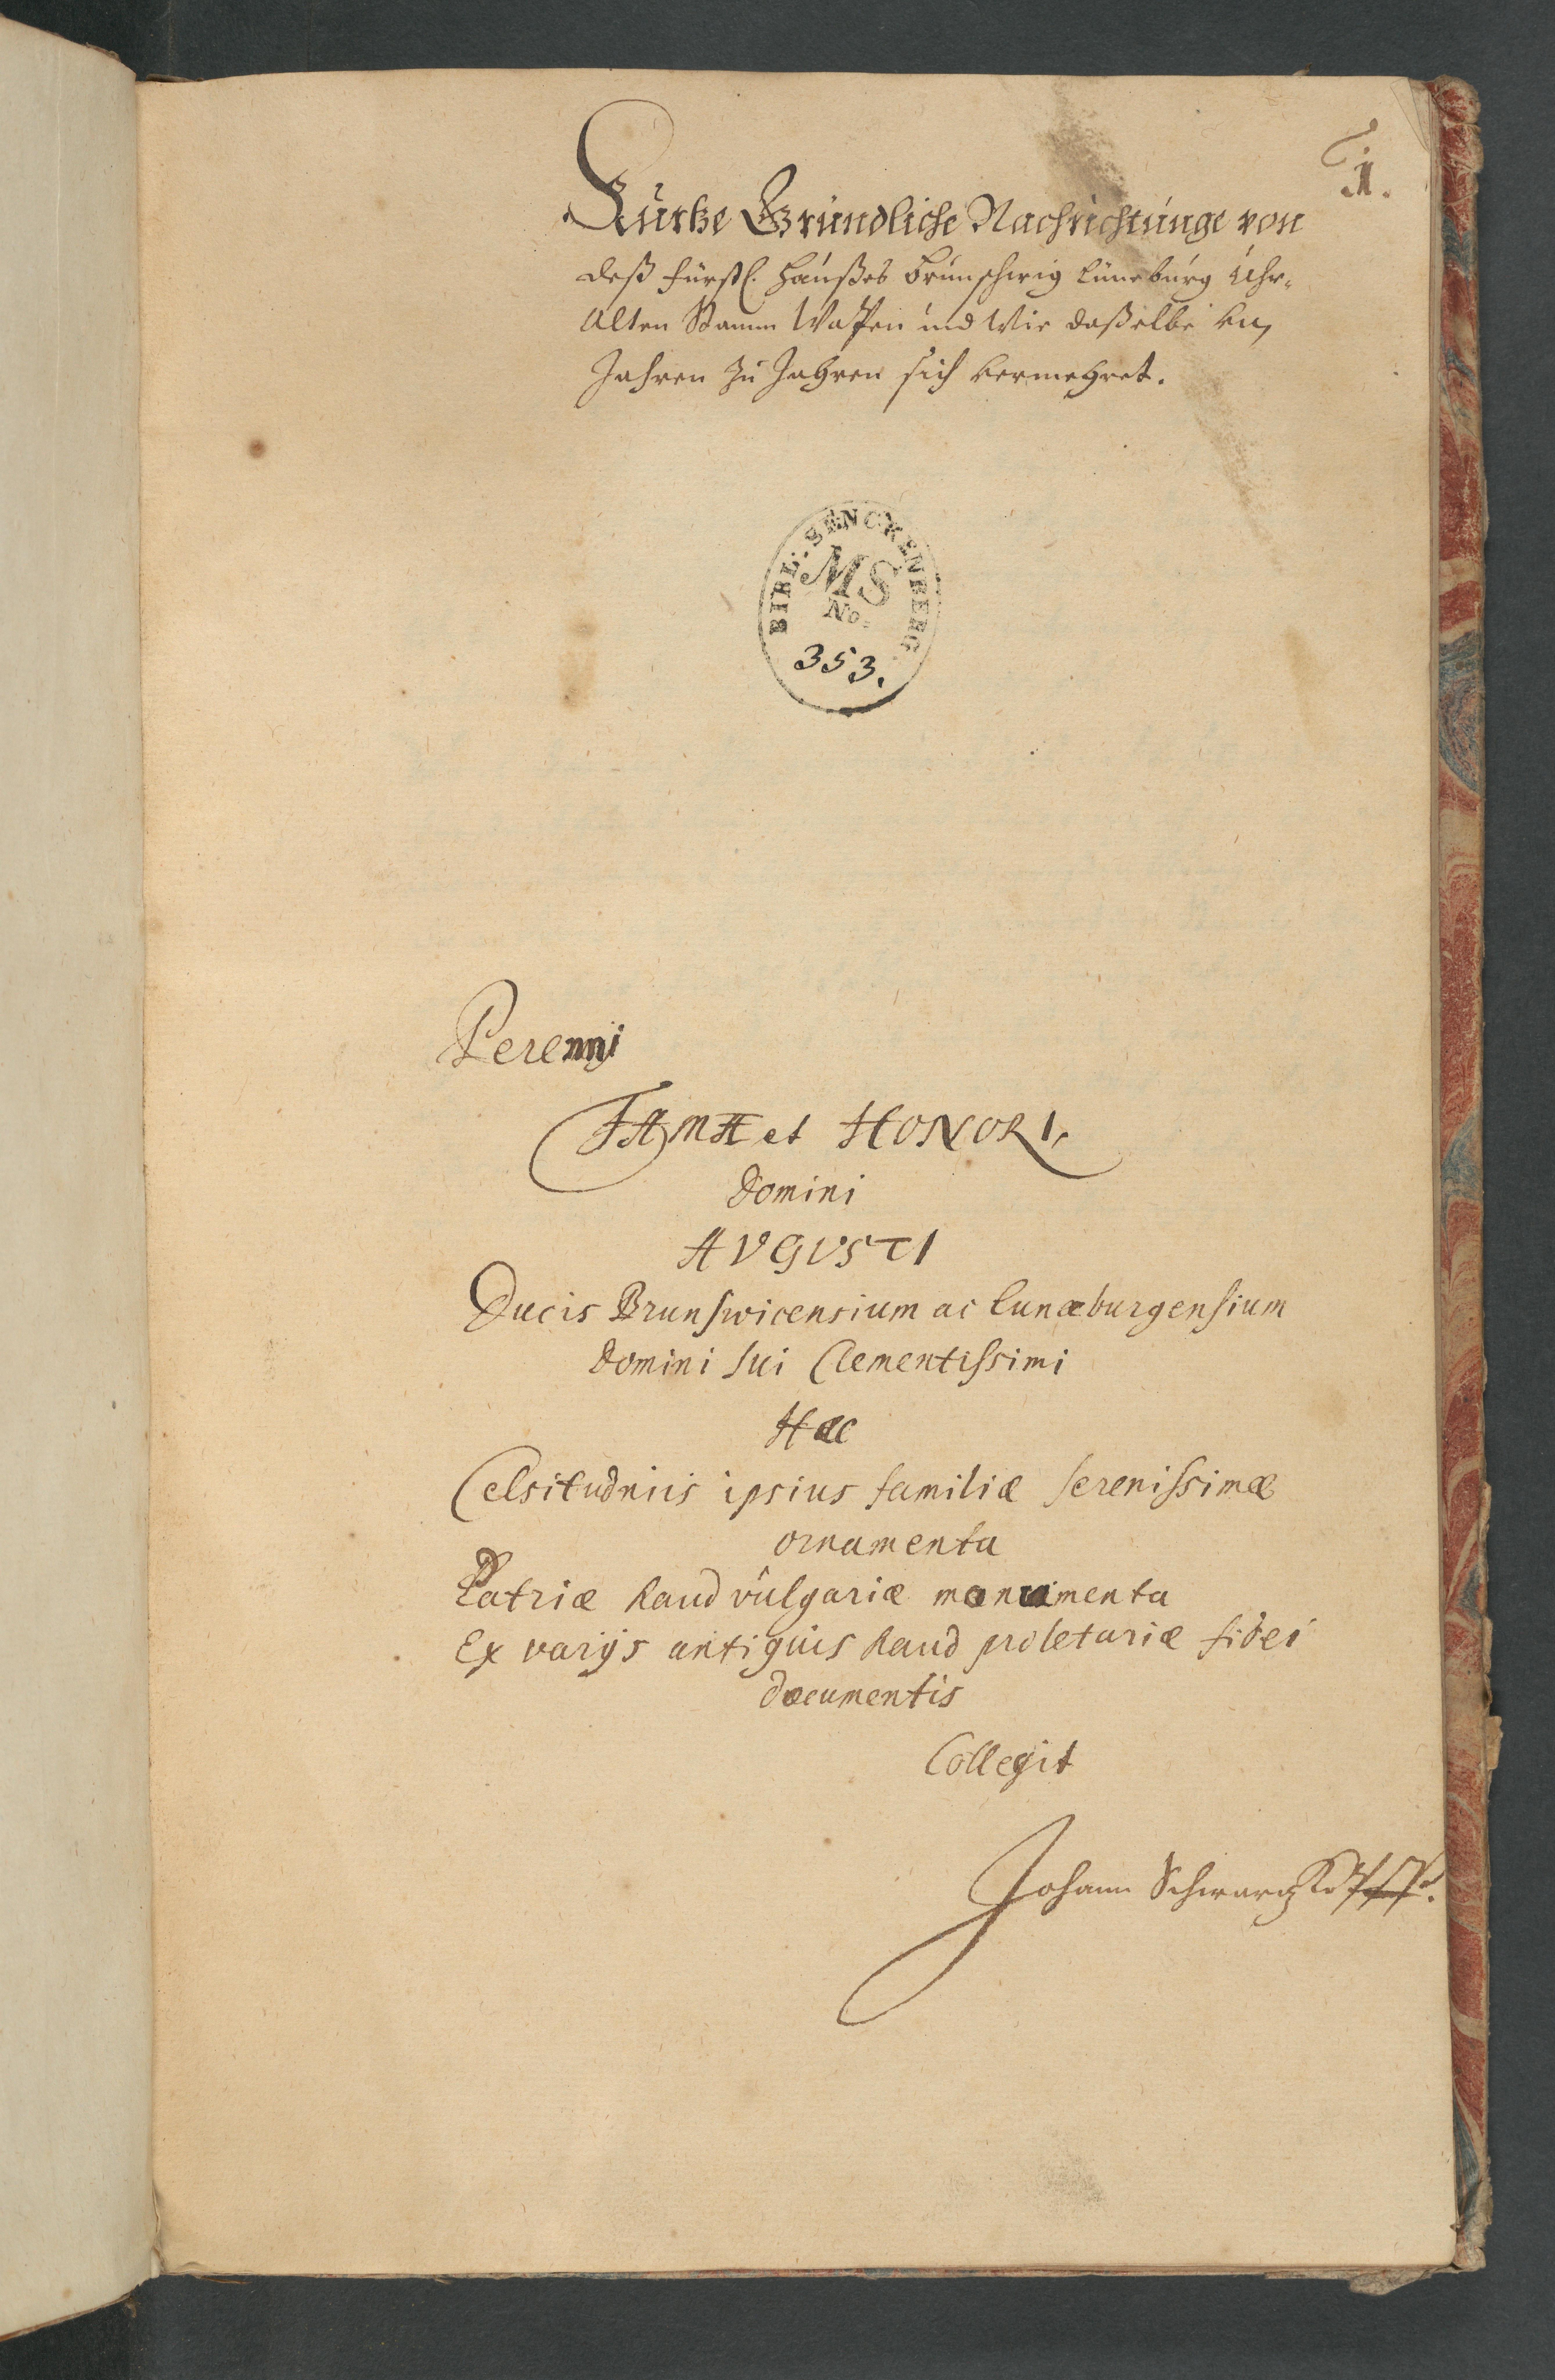 1.
Kurtze Gründliche Nachrichtunge von
deß Fürstl. Haußes Brunschwig Lüneburg Uhr-
Alten Stamm Wapen und Wie daßelbe von
Jahren zu Jahren sich vermehret.
BIBL: SENCKENBERG
MS
No.
353.
Perenni
FAMÆ et HONORI,
Domini
AVGVSTI
Ducis Brunswicensium ac Lunæburgensium
Domini sui Clementissimi
Hæc
Celsitudinis ipsius familiæ serenissimæ
ornamenta
Patriæ haud vulgariæ monumenta
Ex varijs antiquis haud proletariæ fidei
documentis
Collegit
Johann Schwartzkopff.